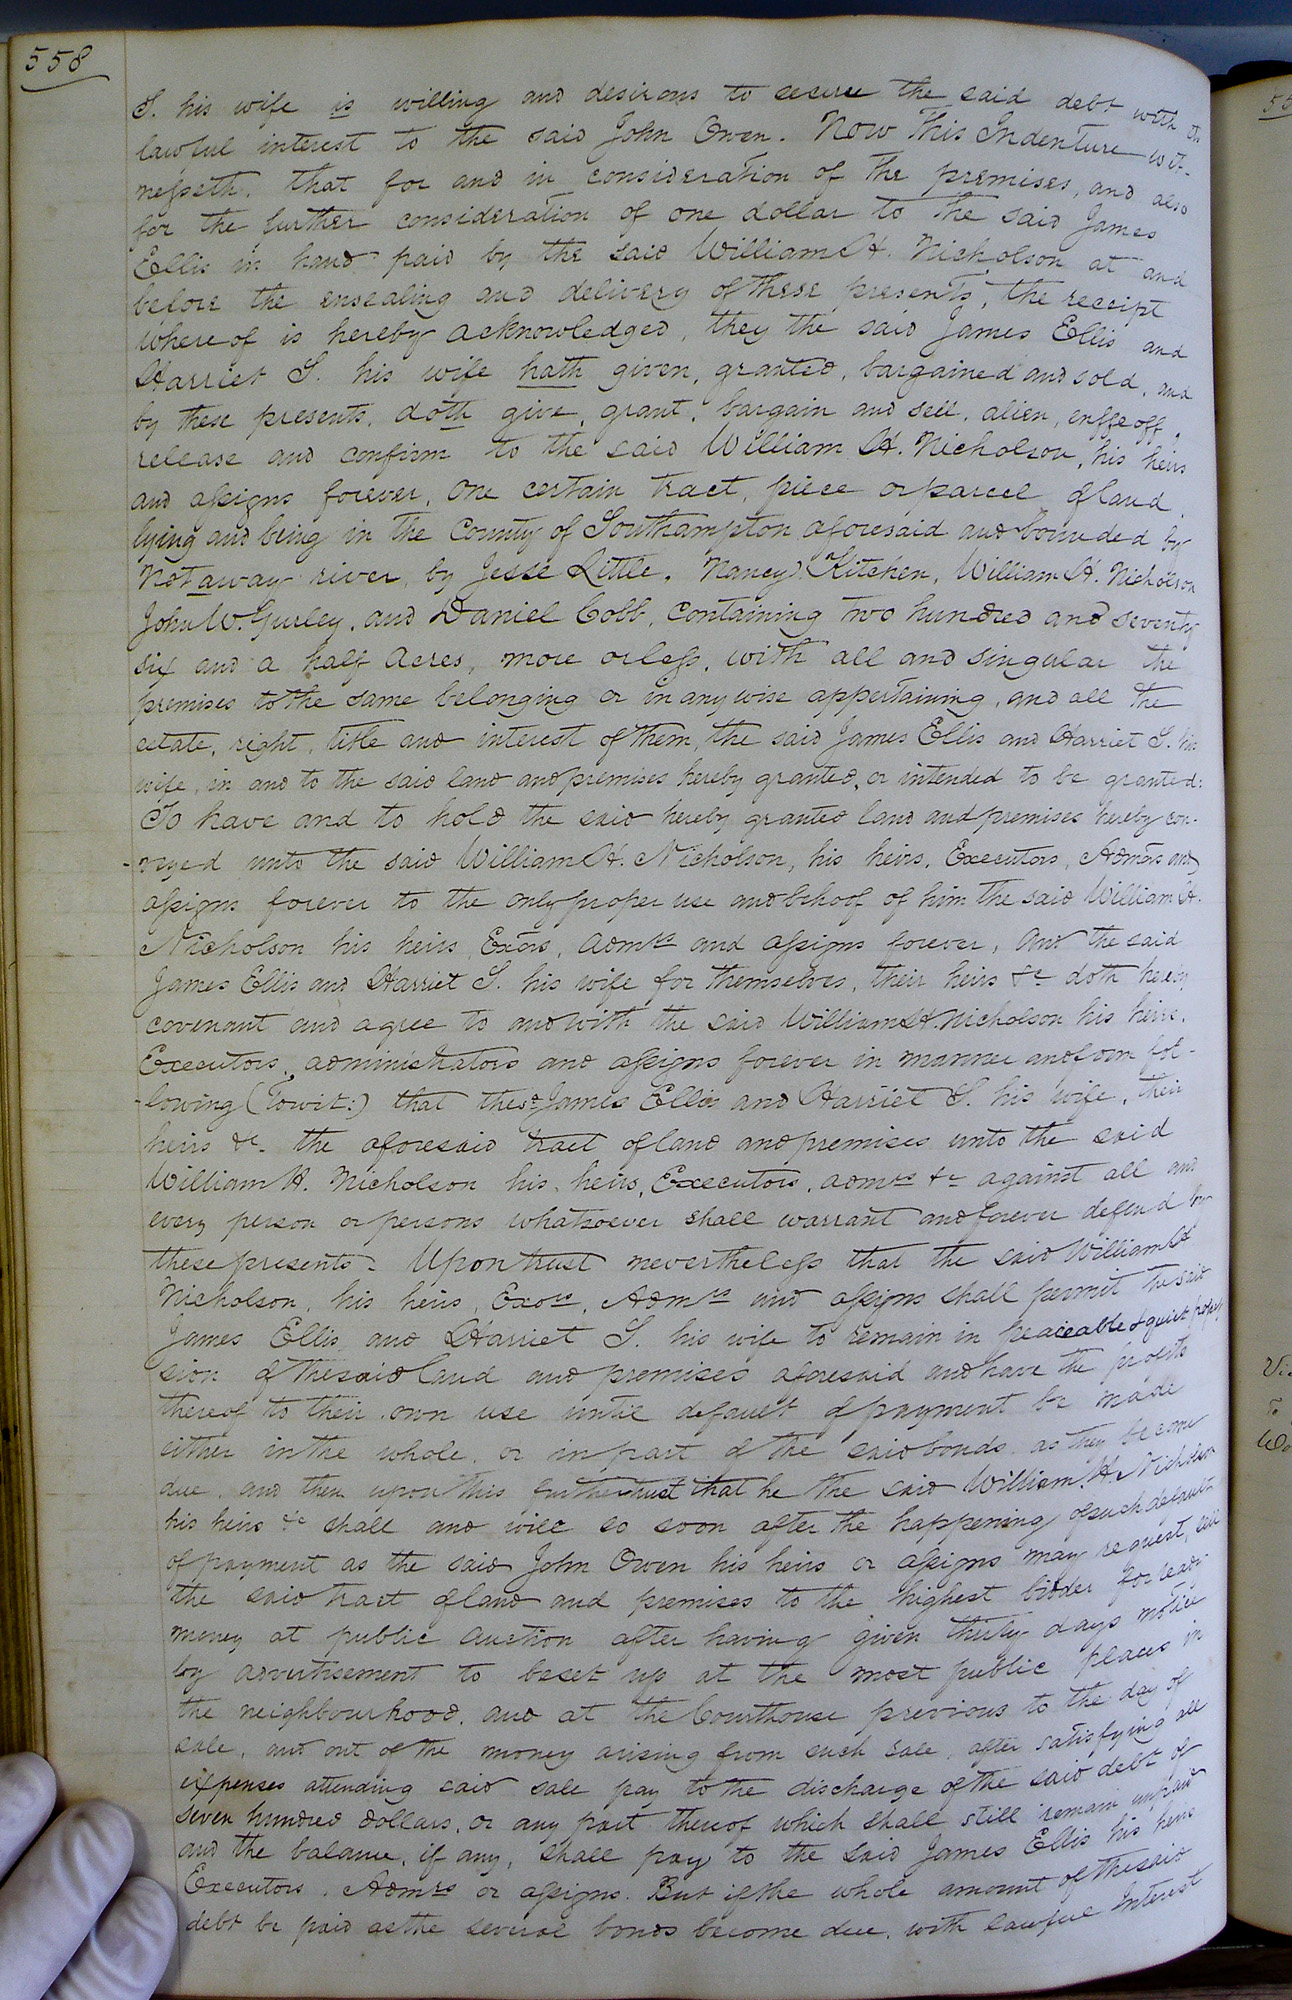 558
S. his wife is willing and desirous to secure the said debt with the
lawful interest to the said John Owen. Now This Indenture wit-
nesseth, that for and in consideration of the premises, and also
for the further consideration of one dollar to the said James
Ellis in hand paid by the said William H. Nicholson at and
before the ensealing and delivery of these presents, the receipt
where of is hereby acknowledged, they the said James Ellis and
Harriet S. his wife hath given, granted, bargained and sold, and
by these presents, doth give, grant, bargain and sell, alien, enffeoff,
release and confirm to the said William H. Nicholson, his heirs
and assigns forever, one certain tract, piece or parcel of land,
lying and being in the County of Southampton aforesaid and bounded by
Notaway river, by Jesse Little, Nancy Kitchen, William H. Nicholson
John W. Gurley, and Daniel Cobb, containing two hundred and seventy
six and a half Acres, more or less, with all and singular the
premises to the same belonging or in any wise appertaining, and all the
estate, right, title and interest of them, the said James Ellis and Harriet S. his
wife, in and to the said land and premises hereby granted, or intended to be granted:
To have and to hold the said hereby granted land and premises hereby con-
-veyed unto the said William H. Nicholson, his heirs, Executors, Admors and
assigns forever to the only proper use and behoof of him the said William H.
Nicholson his heirs, Exors, admrs and assigns forever, And the said
James Ellis and Harriet S. his wife for themselves, their heirs &c doth hereby
covenant and agree to and with the said William H. Nicholson his heirs,
Executors, administrators and assigns forever in manner and form fol-
-lowing (Towit:) that the sd James Ellis and Harriet S. his wife, their
heirs &c. the aforesaid tract of land and premises unto the said
William H. Nicholson his heirs, Executors, admrs &c against all and
every person or persons whatsoever shall warrant and forever defend by
these presents - Upon trust nevertheless that the said William H
Nicholson, his heirs, Exors, Admrs and assigns shall permit the said
James Ellis and Harriet S. his wife to remain in peaceable & quiet posses
sion of the said land and premises aforesaid and have the profits
thereof to their own use until default of payment be made
either in the whole or in part of the said bonds as they become
due, and then upon this further trust that he the said William H Nicholson
his heirs &c shall and will so soon after the happening of such default
of payment as the said John Owen his heirs or assigns may request, sell
the said tract of land and premises to the highest bidder for ready
money at public auction after having given thirty days notice
by advertisement to be set up at the most public places in
the neighbourhood, and at the Courthouse previous to the day of
sale, and out of the money arising from such sale, after satisfying all
expenses attending said sale pay to the discharge of the said debt of
seven hundred dollars, or any part thereof which shall still remain unpaid
and the balance, if any, shall pay to the said James Ellis his heirs
Executors, Admrs or assigns. But if the whole amount of the said
debt be paid as the several bonds become due, with lawful Interest